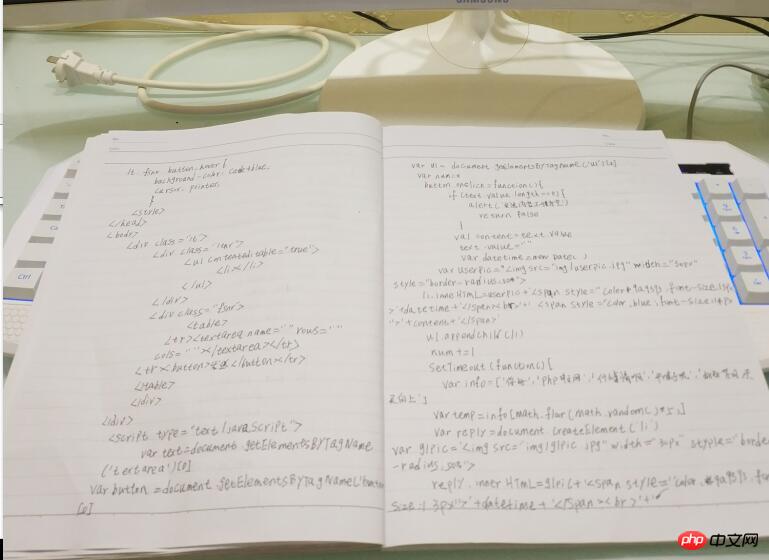 SAMSUNG
lt .finr button.hover {
background-color: cadetblue,
cursor. printer,
}
<style>
</head>
<body>
<div class="lt">
<div class="lthr">
<ul contenteditable="true">
<li></li>
</ul>
</div>
<div class="finr">
<table>
<tr><textarea name="" rows=""
cols=""></textarea></tr>
<tr><button>发送</button></tr>
<table>
</div>
</div>
<script type="text/javascript">
var text=document.getElementsByTagName
('textarea')[0]
var button=document.getElementsByTagName('button
[0]
var ul= document getElementsByTagName('ul')[0]
var num=0
button.onclick=function(){
if(text.value.length==0){
alert('
return false
}
val content=text.value
text.value=""
var datetime=new Date()
var userpic="<img src="img/userpic.jpg" width="50px"
style="border-radius:50%">
li.innerHTML=userpic+'<span style="color
>'+datetime+'</span><br>'+' <span style="color.blue;font-size:14px
">'+content+'</span>'
ul.appendChild(li)
num+=1
setTimeout(function(){
var info=['你好','php中文网',
天向上']
var temp=info[math.flar(math.random()*5)]
var reply=document createElement('li')
var glpic='<img src="img/glpic.jpg" width="30px" styple="border
-radius,50%">
reply.inner HTML=glpic+'<span style="color.
size:13px">'+datetime+'</span><br>'+'
Ctrl
php 中文网